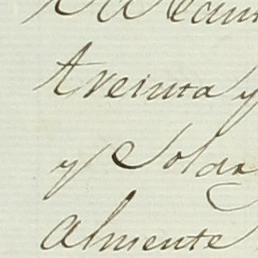 treinta y
y Solda
almente